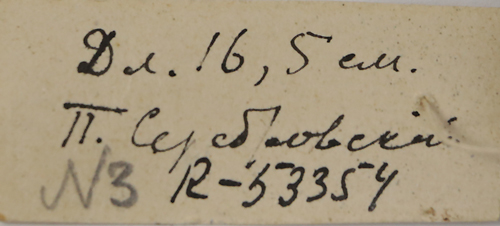 Дл. 16,5 см.
П. Серебровский
N3 R-53354